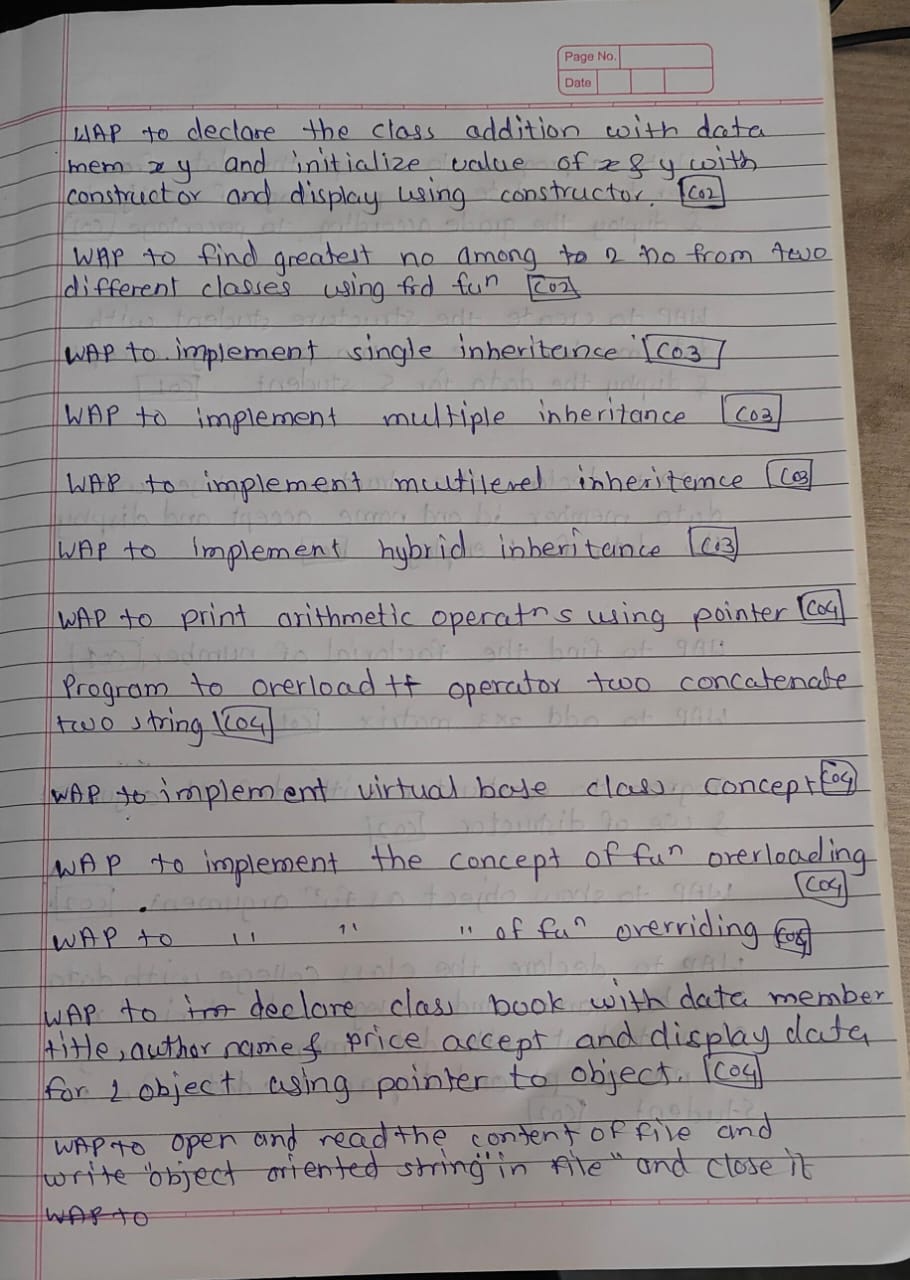 Page No.
Date
WAP to declare the class addition with data
mem x y and initialize value of x & y with
constructor and display using constructor. [CO2]
WAP to find greatest no among to 2 no from two
different classes using frd fun [CO2]
WAP to implement single inheritance [CO3]
WAP to implement multiple inheritance [CO3]
WAP to implement multilevel inheritence [CO3]
WAP to implement hybrid inheritance [CO3]
WAP to print arithmetic operatns using pointer [CO4]
Program to overload ++ operator two concatenate
two string [CO4]
WAP to implement virtual base class concept [CO4]
WAP to implement the concept of fun overloading
[CO4]
WAP to " " " of fun overriding [CO4]
WAP to declare class book with data member
title, author name & price accept and display data
for 1 object using pointer to object. [CO4]
WAP to open and read the content of file and
write "object oriented string" in file" and close it
WAP to